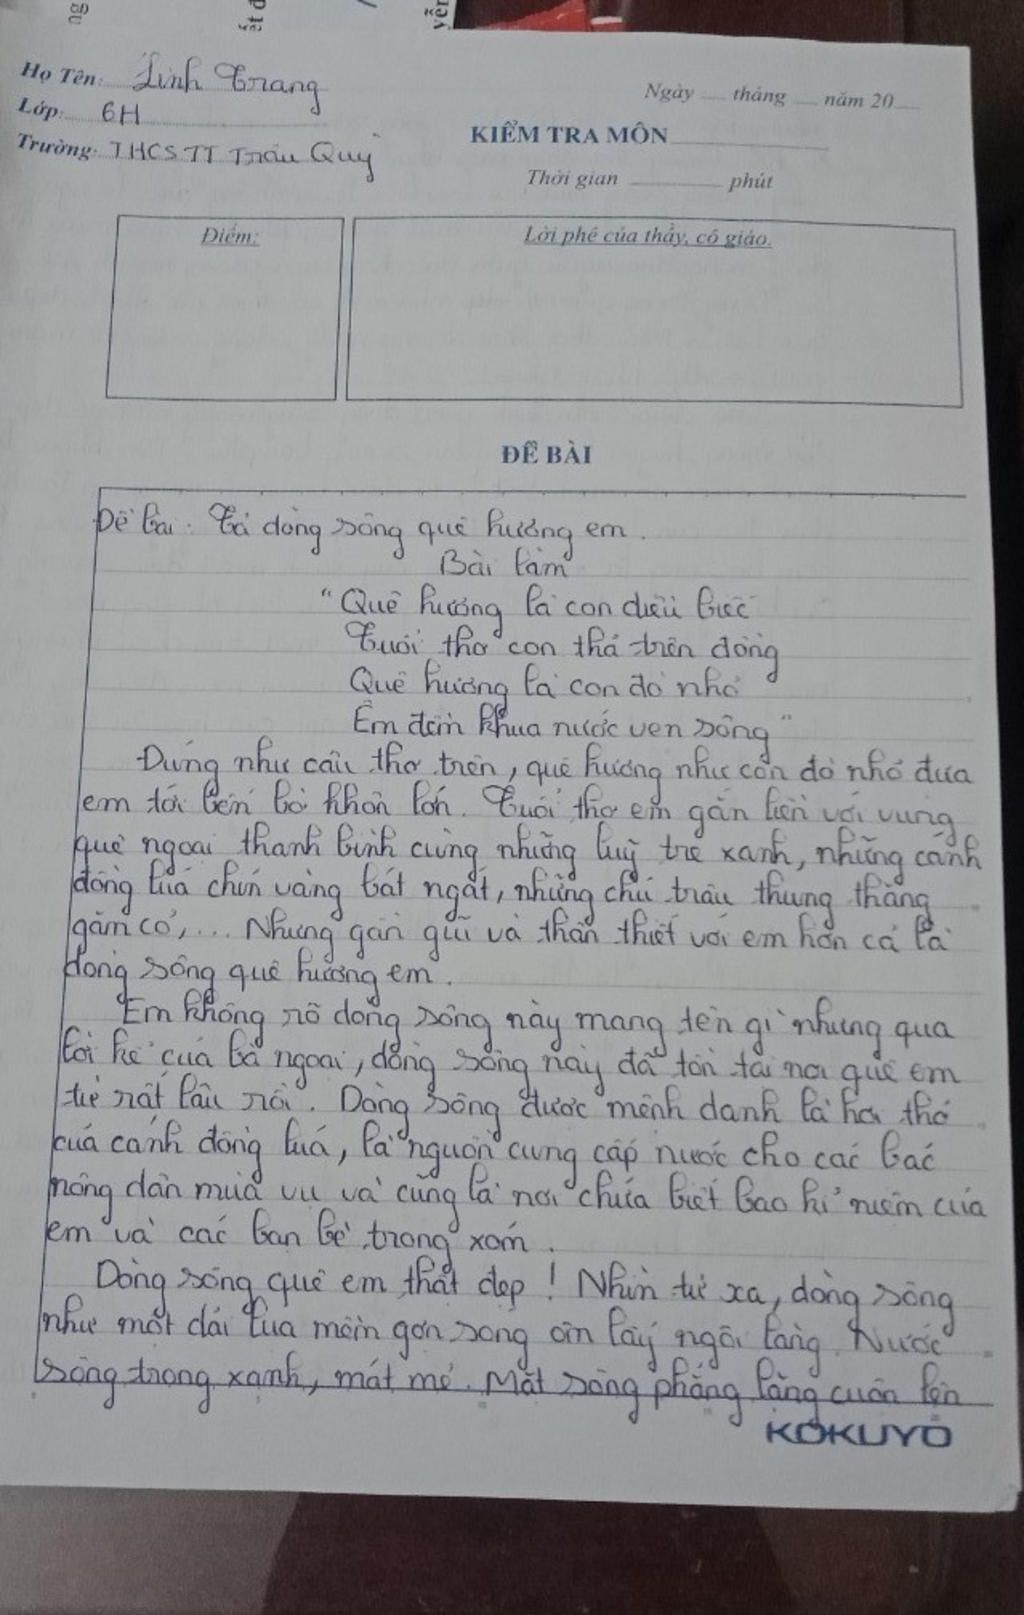 ng
ết đ
yễn
Họ Tên: Linh Trang
Lớp: 6H
Trường: THCS TT Trâu Quỳ
Ngày .... tháng .... năm 20....
KIỂM TRA MÔN
Thời gian phút
Điểm:
Lời phê của thầy, cô giáo.
ĐỀ BÀI
Đề bài: Tả dòng sông quê hương em.
Bài làm
"Quê hương là con diều biếc
Tuổi thơ con thả trên đồng
Quê hương là con đò nhỏ
Êm đềm khua nước ven sông"
Đúng như câu thơ trên, quê hương như con đò nhỏ đưa
em tới bến bờ khôn lớn. Tuổi thơ em gắn liền với vùng
quê ngoại thanh bình cùng những luỹ tre xanh, những cánh
đồng lúa chín vàng bát ngát, những chú trâu thung thăng
gặm cỏ,... Nhưng gần gũi và thân thiết với em hơn cả là
dòng sông quê hương em.
Em không rõ dòng sông này mang tên gì nhưng qua
lời kể của bà ngoại, dòng sông này đã tồn tại nơi quê em
từ rất lâu rồi. Dòng sông được mệnh danh là hơi thở
của cánh đồng lúa, là nguồn cung cấp nước cho các bác
nông dân mùa vụ và cũng là nơi chứa biết bao kỉ niệm của
em và các bạn bè trong xóm.
Dòng sông quê em thật đẹp! Nhìn từ xa, dòng sông
như một dải lụa mềm gợn sóng ôm lấy ngôi làng. Nước
sông trong xanh, mát mẻ. Mặt sông phẳng lặng cuốn lên
KOKUYO